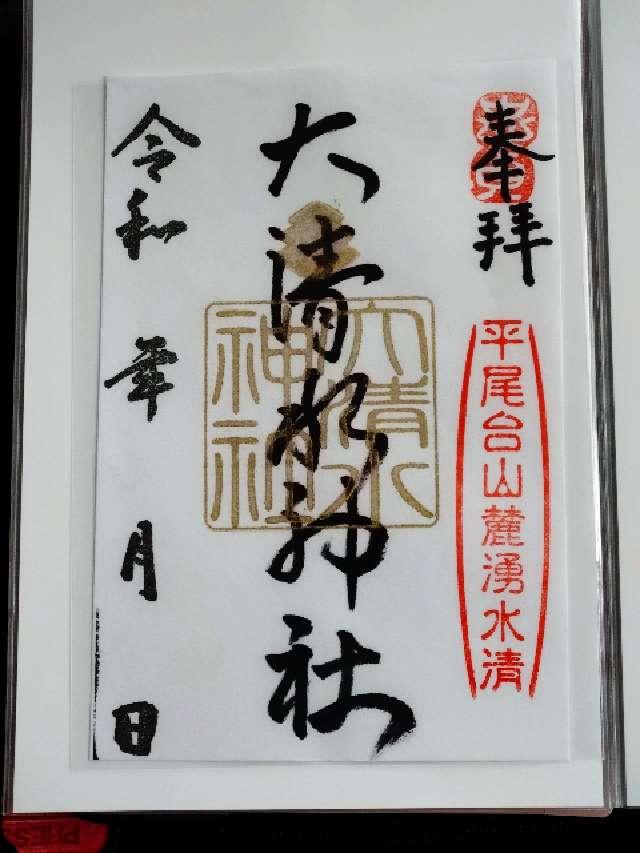 奉拝
平尾台山麓湧水清
大清水神社
大清水神社
令和 年 月 日